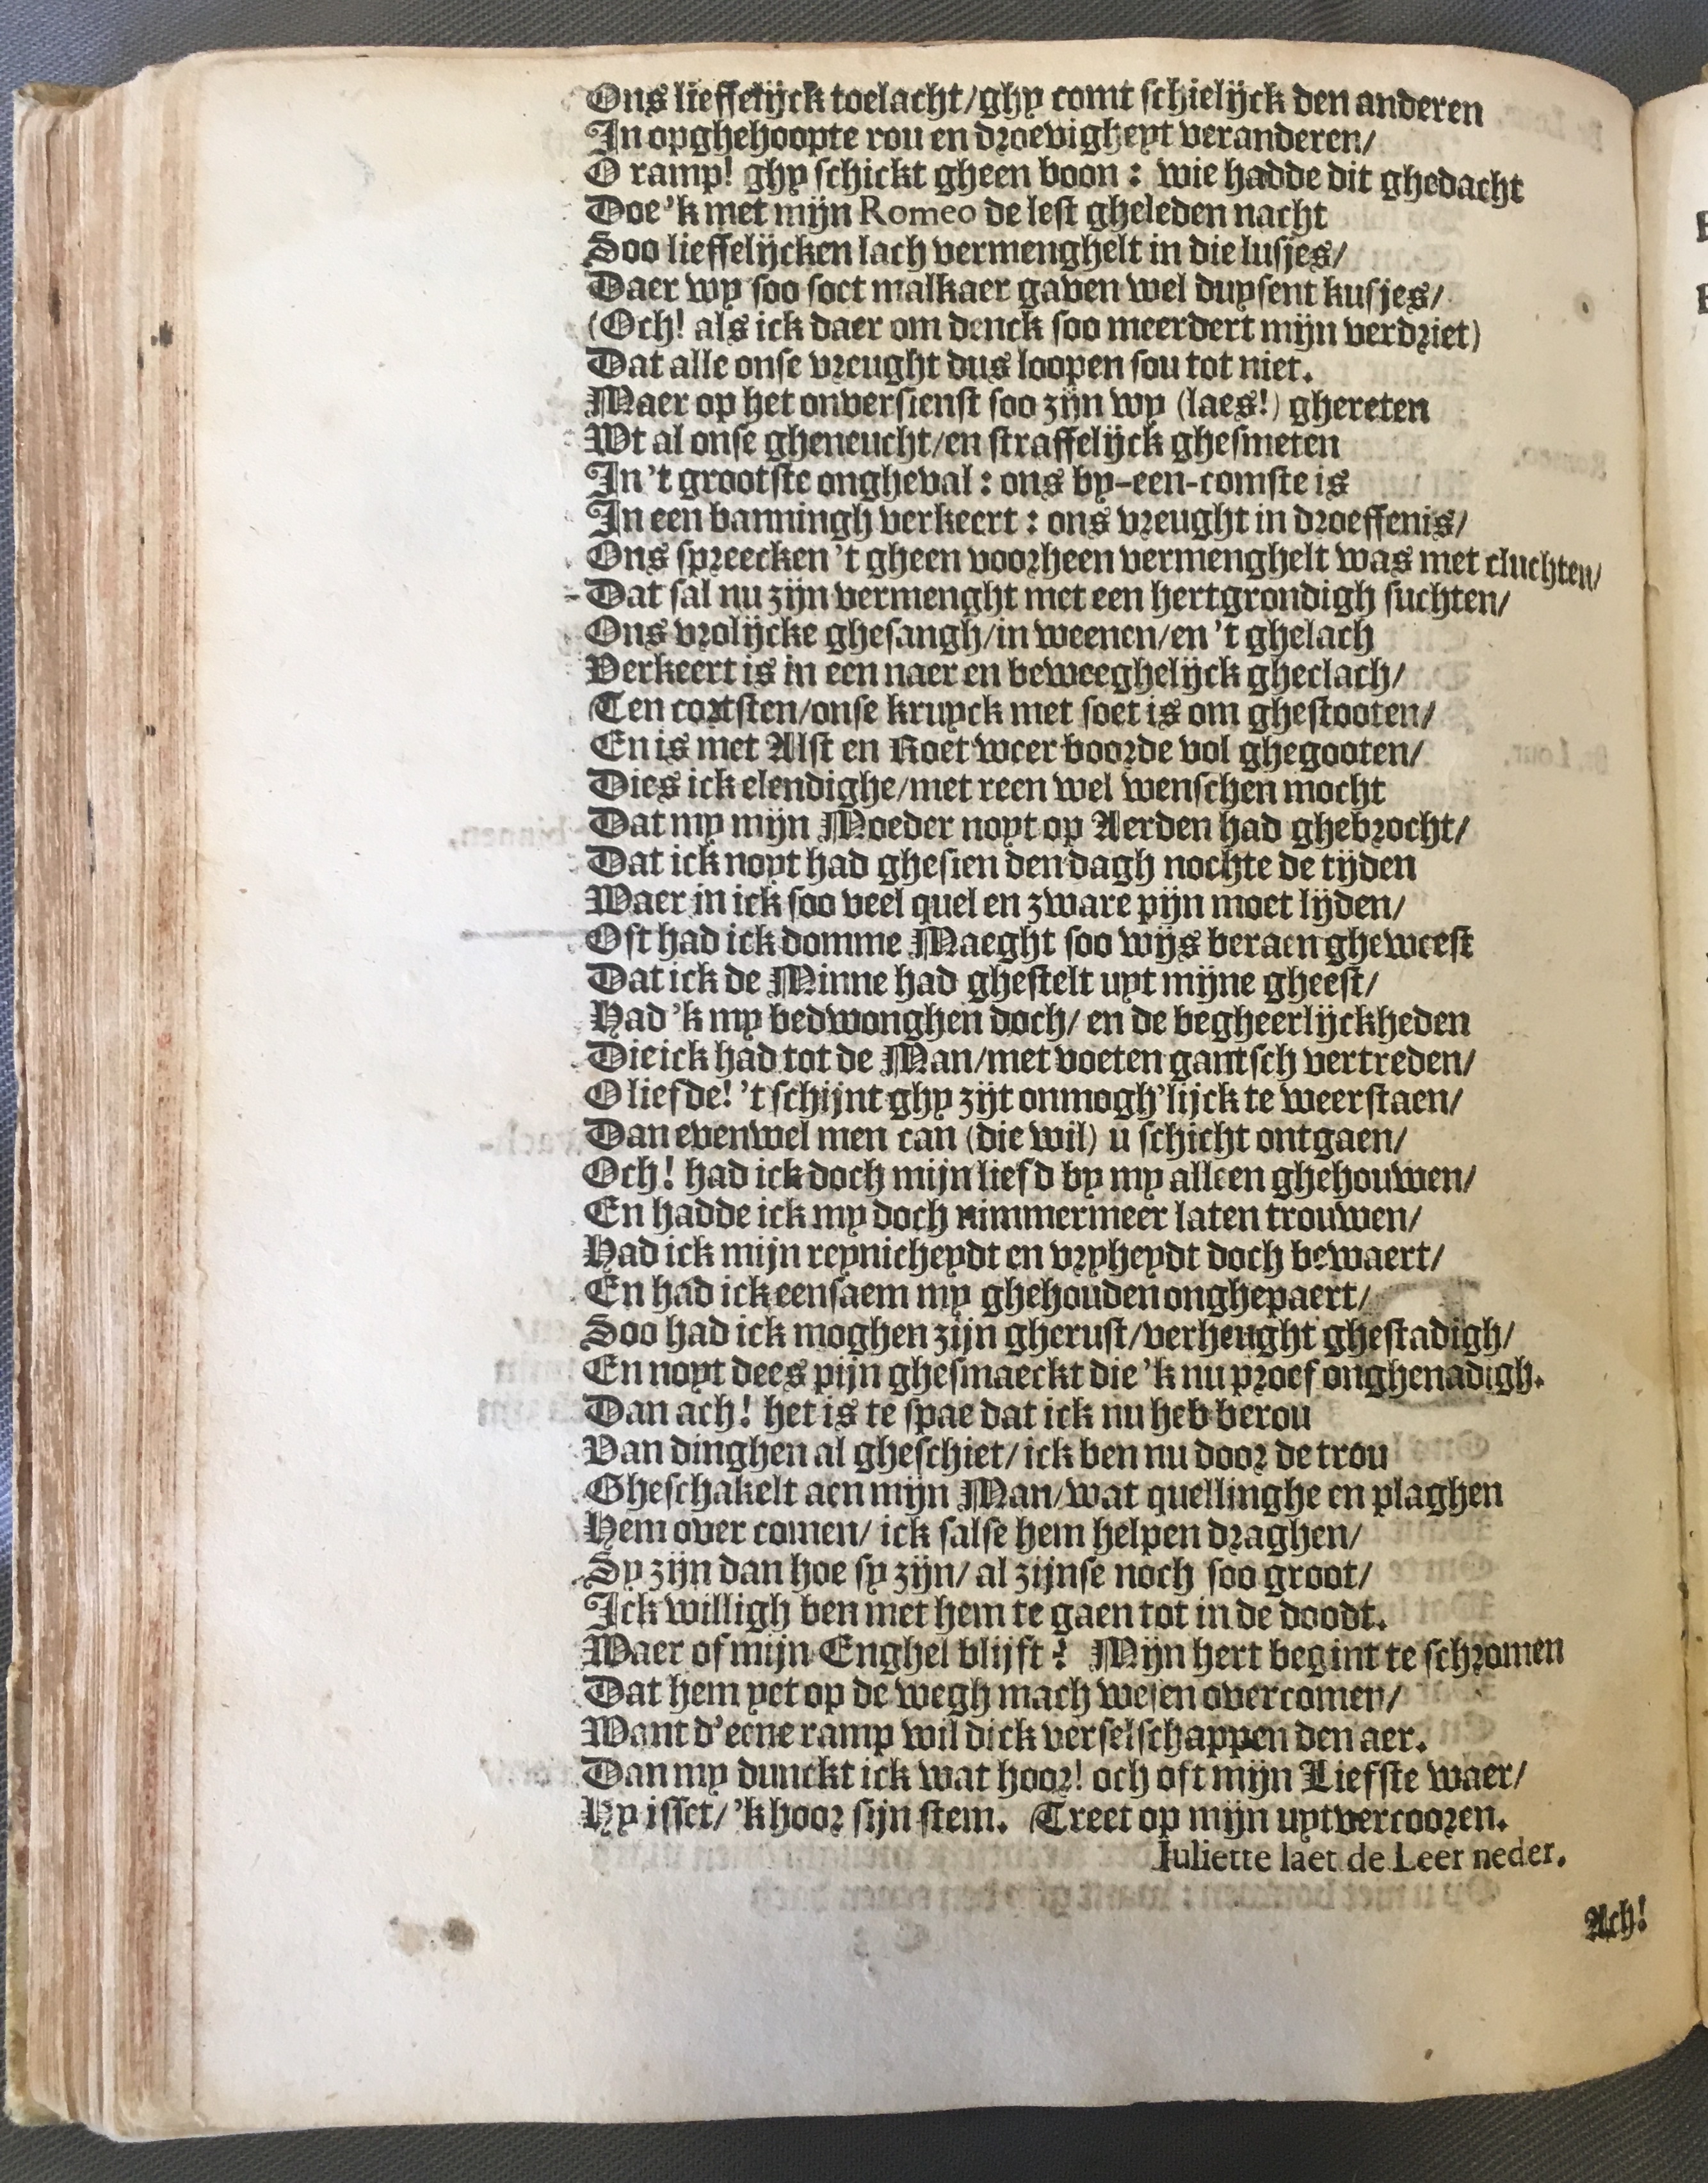 Ons lieffelijck toelacht/ghy comt schielijck den anderen
In onghehoopte rou en droevigheyt veranderen/
O ramp! ghy schickt gheen boon : wie hadde dit ghedacht
Doe'k met mijn Romeo de lest gheleden nacht
Soo lieffelijcken lach vermenghelt in die lusjes/
Daer wy soo soet malkaer gaven wel duysent kusjes/
(Och! als ick daer om denck soo meerdert mijn verdriet)
Dat alle onse vreught dus loopen sou tot niet.
Maer op het onversienst soo zijn wy (laes!) ghereten
Wt al onse gheneucht/en straffelijck ghesmeten
In 't grootste ongheval : ons by-een-comste is
In een banningh verkeert : ons vreught in droeffenis/
Ons spreecken 't gheen voorheen vermenghelt was met cluchten/
Dat sal nu zijn vermenght met een hertgrondigh suchten/
Ons vrolijcke ghesangh/in weenen/en 't ghelach
Verkeert is in een naer en beweeghelijck gheclach/
Ten cortsten/onse kruyck met soet is om ghestooten/
En is met Alst en Roet weer boorde vol ghegooten/
Dies ick elendighe/met reen wel wenschen mocht
Dat my mijn Moeder noyt op Aerden had ghebrocht/
Dat ick noyt had ghesien den dagh nochte de tijden
Waer in ick soo veel quel en zware pijn moet lijden/
Oft had ick domme Maeght soo wijs beraen gheweest
Dat ick de Minne had ghestelt uyt mijne gheest/
Had 'k my bedwonghen doch/ en de begheerlijckheden
Die ick had tot de Man/met voeten gantsch vertreden/
O liefde! 't schijnt ghy zijt onmogh'lijck te weerstaen/
Dan evenwel men can (die wil) u schicht ontgaen/
Och! had ick doch mijn lief'd by my alleen ghehouwen/
En hadde ick my doch nimmermeer laten trouwen/
Had ick mijn reynicheydt en vryheydt doch bewaert/
En had ick eensaem my ghehouden onghepaert/
Soo had ick moghen zijn gherust/verheught ghestadigh/
En noyt dees pijn ghesmaeckt die 'k nu proef onghenadigh.
Dan ach! het is te spae dat ick nu heb berou
Van dinghen al gheschiet/ ick ben nu door de trou
Gheschakelt aen mijn Man/wat quellinghe en plaghen
Hem over comen/ ick salse hem helpen draghen/
Sy zijn dan hoe sy zijn/ al zijnse noch soo groot/
Ick willigh ben met hem te gaen tot in de doodt.
Waer of mijn Enghel blijft ? Mijn hert begint te schromen
Dat hem yet op de wegh mach wesen overcomen/
Want d'eene ramp wil dick verselschappen den aer.
Dan my dunckt ick wat hoor! och oft mijn Liefste waer/
Hy isset/ 'k hoor sijn stem. Treet op mijn uytvercooren.
Juliette laet de Leer neder.
Ach!